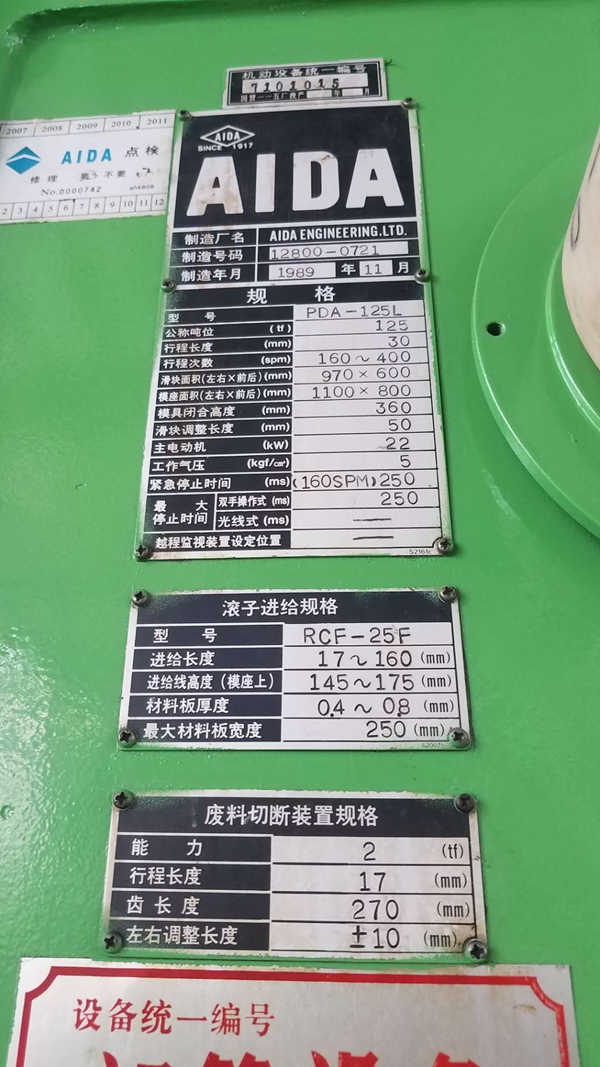 机动设备统一编号
7101015
年 月
2007 2008 2009 2010 2011
AIDA 点检
修理 不要
No.0000742
2 3 4 5 6 7 8 9 10 11 12
AIDA
SINCE 1917
AIDA
制造厂名 AIDA ENGINEERING.LTD.
制造号码 12800-0721
制造年月 1989 年 11 月
规 格
型 号 PDA-125L
公称吨位 (tf) 125
行程长度 (mm) 30
行程次数 (spm) 160～400
滑块面积(左右×前后)(mm) 970×600
模座面积(左右×前后)(mm) 1100×800
模具闭合高度 (mm) 360
滑块调整长度 (mm) 50
主电动机 (kW) 22
工作气压 (kgf/cm²) 5
紧急停止时间 (ms) (160SPM)250
最大停止时间 双手操作式 (ms) 250
光线式 (ms) —
越程监视装置设定位置 —
S2161c
滚子进给规格
型 号 RCF-25F
进给长度 17～160 (mm)
进给线高度 (模座上) 145～175 (mm)
材料板厚度 0.4～0.8 (mm)
最大材料板宽度 250 (mm)
S2007
废料切断装置规格
能 力 2 (tf)
行程长度 17 (mm)
齿长度 270 (mm)
左右调整长度 ±10 (mm)
设备统一编号